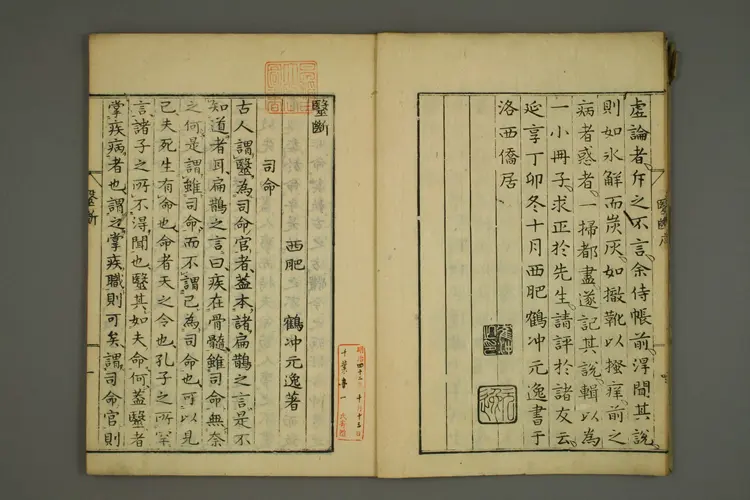 虚論者斥之不言余侍帳前得聞其說
則如氷解而炭灰如撤靴以搔痒前之
病者惑者一掃都盡遂記其說輯以為
一小冊子求正於先生請評於諸友云
延享丁卯冬十月西肥鶴冲元逸書于
洛西僑居
毉斷
司命
西肥 鶴冲元逸著
古人謂毉為司命官者蓋本諸扁鵲之言是不
知道者耳扁鵲之言曰疾在骨髓雖司命無奈
之何是謂雖司命而不謂己為司命也可以見
已夫死生有命也命者天之令也孔子之所罕
言諸子之所不得聞也毉其如夫命何蓋毉者
掌疾病者也謂之掌疾職則可矣謂司命官則
毉斷